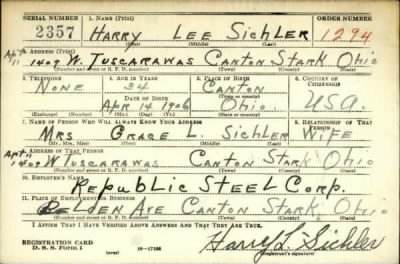 SERIAL NUMBER 1. NAME (Print) ORDER NUMBER
2357 HARRY LEE SICHLER 1294
(First) (Middle) (Last)
2. ADDRESS (Print)
Apt 11 1409 W. TUSCARAWAS CANTON STARK OHIO
(Number and street or R. F. D. number) (Town) (County) (State)
3. TELEPHONE 4. AGE IN YEARS 5. PLACE OF BIRTH 6. COUNTRY OF CITIZENSHIP
NONE 34 CANTON
DATE OF BIRTH (Town or county)
Apr 14 1906 Ohio. USA.
(Mo.) (Day) (Yr.) (State or country)
7. NAME OF PERSON WHO WILL ALWAYS KNOW YOUR ADDRESS 8. RELATIONSHIP OF THAT PERSON
MRS GRACE L. SICHLER WIFE
(Mr., Mrs., Miss) (First) (Middle) (Last)
9. ADDRESS OF THAT PERSON
Apt 11 1409 W TUSCARAWAS CANTON STARK Ohio
(Number and street or R. F. D. number) (Town) (County) (State)
10. EMPLOYER'S NAME
Republic STEEL CORP.
11. PLACE OF EMPLOYMENT OR BUSINESS
BELDEN AVE CANTON STARK, Ohio
(Number and street or R. F. D. number) (Town) (County) (State)
I AFFIRM THAT I HAVE VERIFIED ABOVE ANSWERS AND THAT THEY ARE TRUE.
REGISTRATION CARD
D. S. S. FORM 1 (over) 16-17105 Harry L. Sichler
(Registrant's signature)